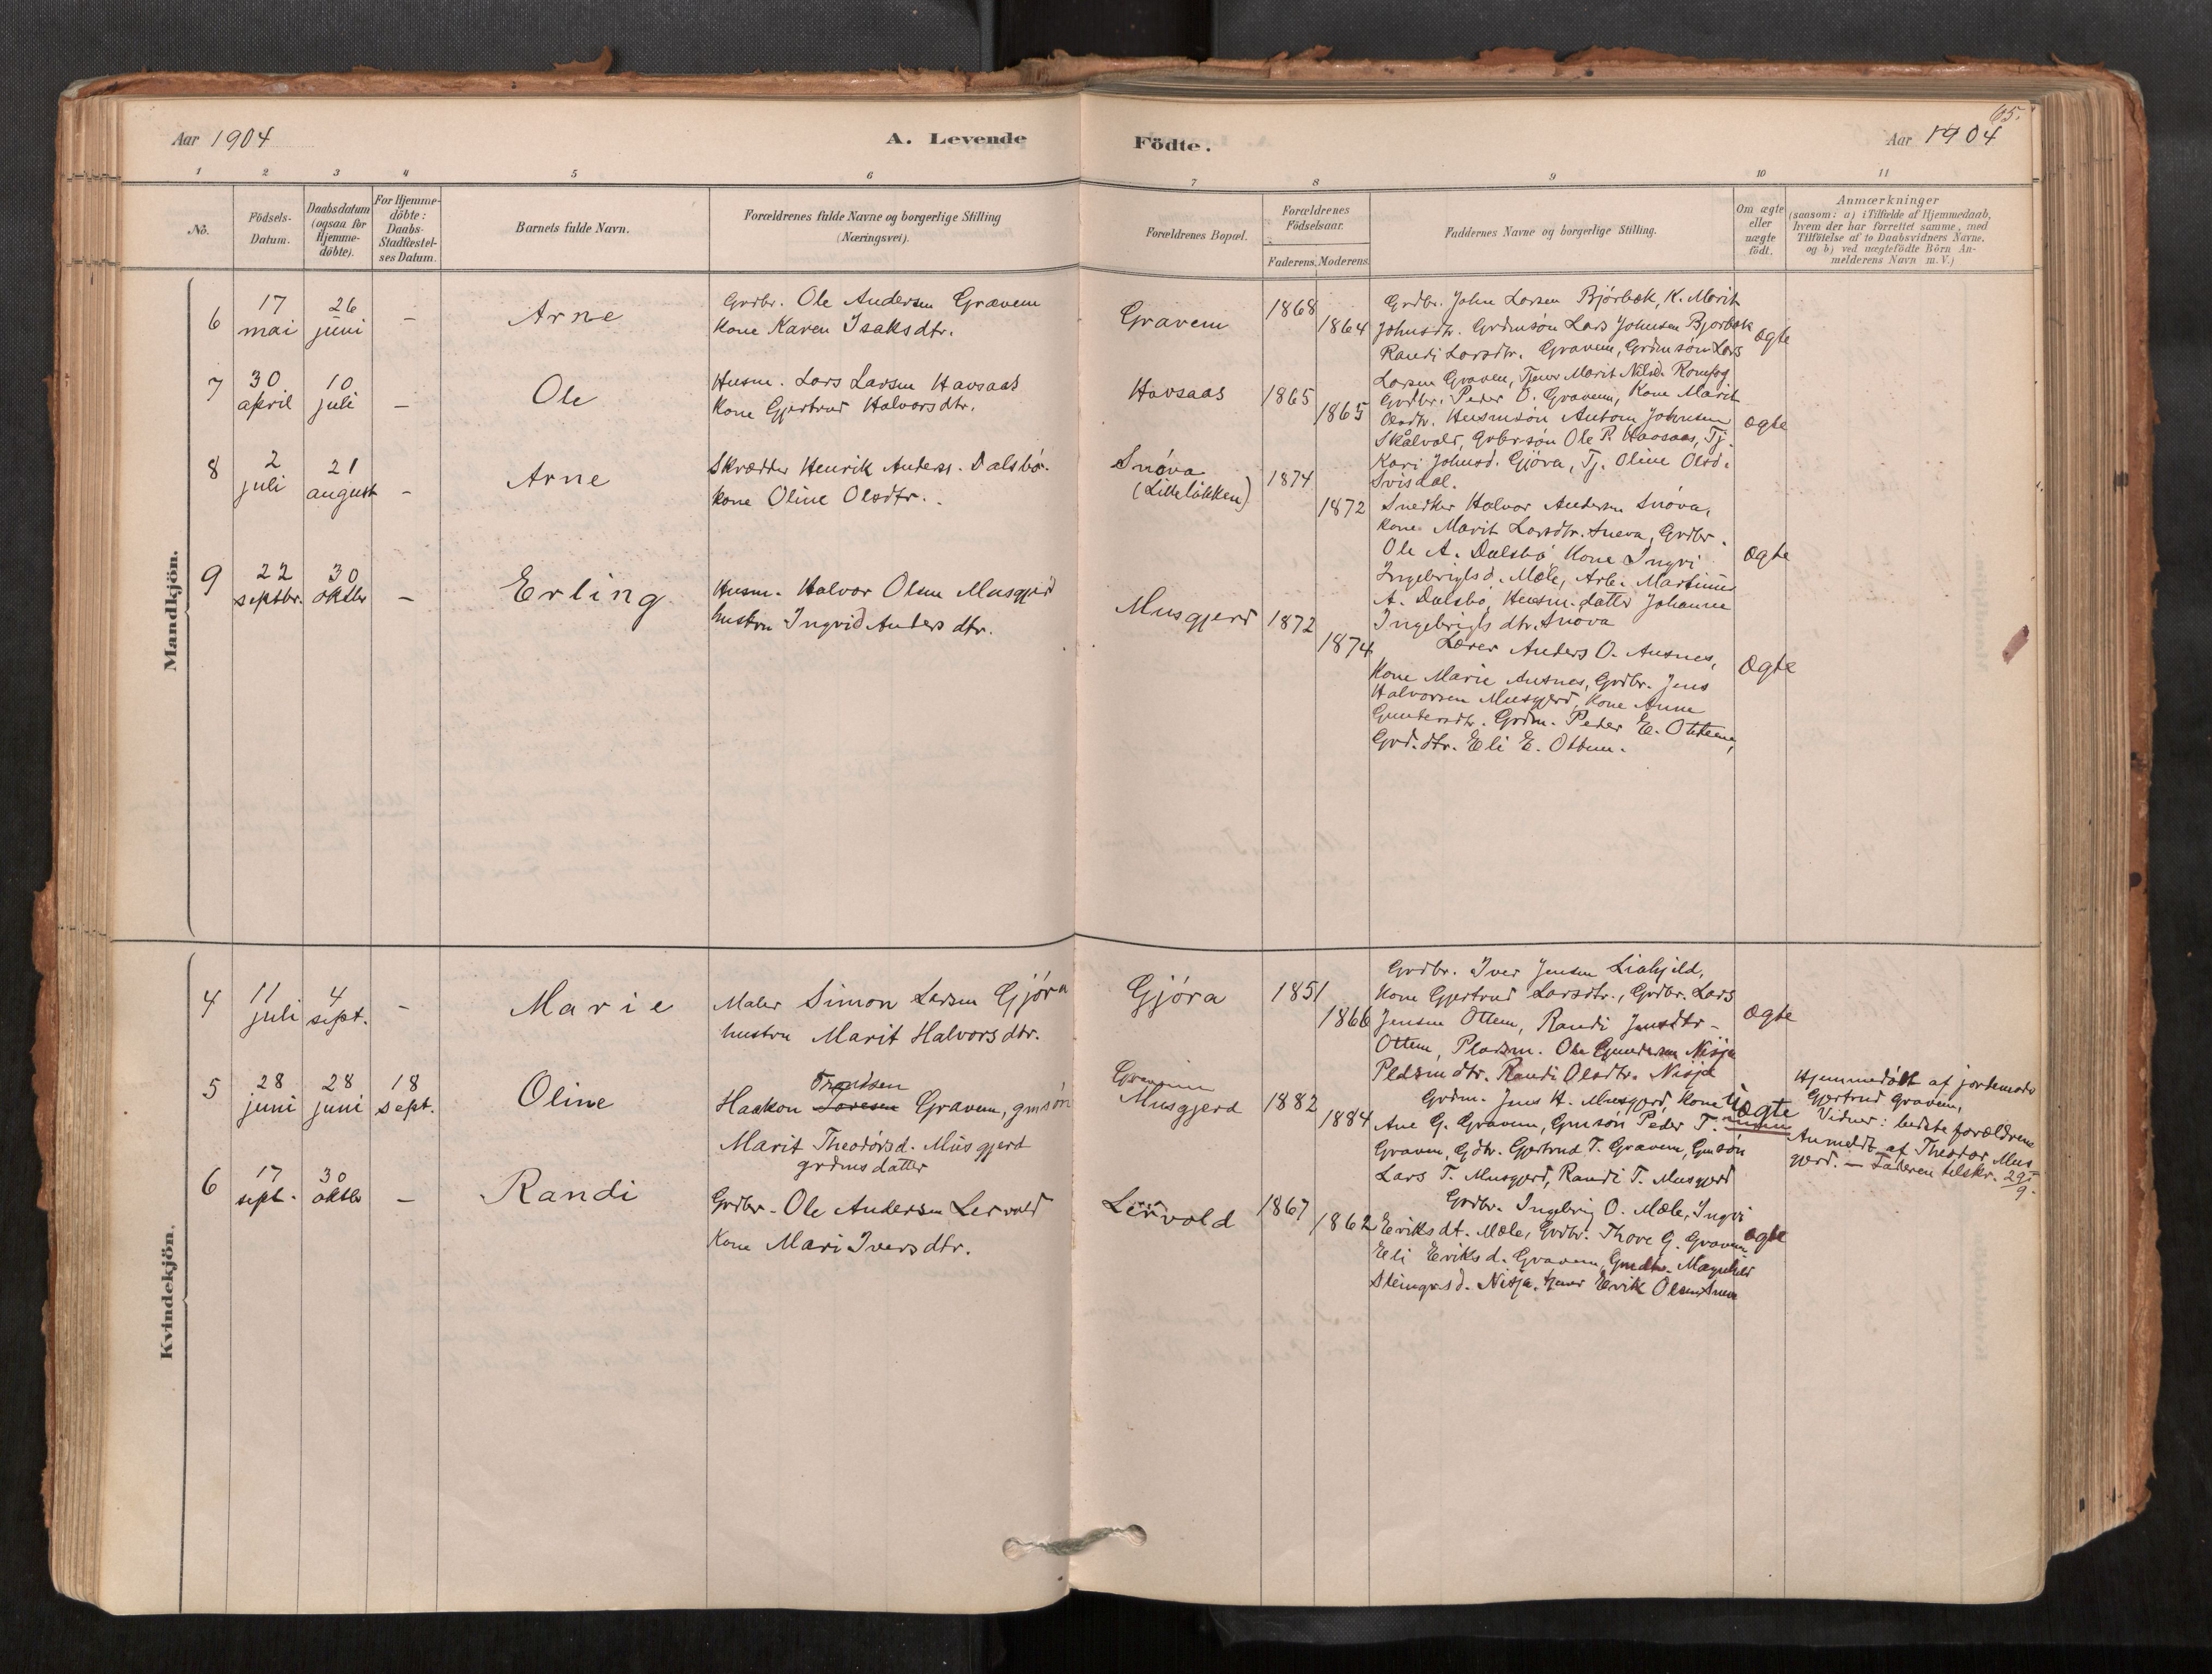 Aar 1904
A. Levende
Födte.
Aar 1904
65.
1 2 3 4 5 6 7 8 9 10 11
No.
Födsels-
Datum.
Daabsdatum
(ogsaa for
Hjemme-
döbte).
For Hjemme-
döbte:
Daabs-
Stadfæstel-
ses Datum.
Barnets fulde Navn.
Forældrenes fulde Navne og borgerlige Stilling
(Næringsvei).
Forældrenes Bopæl.
Forældrenes
Födselsaar.
Faderens.
Moderens.
Faddernes Navne og borgerlige Stilling.
Om ægte
eller
uægte
födt.
Anmærkninger
(saasom: a) i Tilfælde af Hjemmedaab,
hvem der har forrettet samme, med
Tilföielse af to Daabsvidners Navne,
og b) ved uægtefödte Börn An-
melderens Navn m. V.)
Mandkjön.
6
17
mai
26
juni
–
Arne
Grdbr. Ole Andersen Gravem
Kone Karen Isaksdtr.
Gravem
1868
1864
Grdbr. John Larsen Bjórbæk, K. Marit
Johnsdtr. Grdmsón Lars Johnsen Bjorbæk
Randi Larsdtr. Gravem, Grdmsón Lars
Larsen Graven, Tjener Marit Nilsd.
ægte
7
30
april
10
juli
–
Ole
Husm. Lars Larsen Havsaas
Kone Gjertrud Halvorsdtr.
Havsaas
1865
1865
Grdbr. Peder O. Gravem, Kone Marit
Olsdtr. Husmsön Anton Johnsen
Skålvold, Grbrsøn Ole P. Havsaas, Tj.
Kari Johnsd. Gjöra, Tj. Oline Olsd.
Svisdal.
ægte
8
2
juli
21
august
–
Arne
Skrædder Henrik Anders. Dalsbö.
Kone Oline Olsdtr.
Snóva
(Lillelökken)
1874
1872
Snedker Halvor Andersen Snóva,
Kone Marit Larsdtr. Sneva, Grdbr.
Ole A. Dalsbó, Kone Ingri
Ingebrigtsd. Mæle, Arb. Martinus
A. Dalsbó, Husm.datter Johanne
Ingebrigtsdtr. Snova
ægte
9
22
septbr.
30
oktbr
–
Erling
Husm. Halvor Olsen Musgjerd
hustru Ingrid Andersdtr.
Musgjerd
1872
1874
Lærer Anders O. Ausnes,
Kone Marie Ausnes, Grdbr. Jens
Halvorsen Musgjerd, Kone Anne
Gundersdtr. Grdm. Peder E. Ottem,
Grd.dtr. Eli E. Ottem.
ægte
Kvindekjön.
4
11
juli
4
sept.
–
Marie
Maler Simon Larsen Gjóra
hustru Marit Halvorsdtr.
Gjóra
1851
1866
Grdbr. Iver Jensen Liahjell,
Kone Gjertrud Larsdtr., Grdbr. Lars
Jensen Ottem, Randi Jensdtr –
Ottem, Pladsm. Ole Gundersen Nisja
Pldsmdtr. Randi Olsdtr. Nisja
ægte
5
28
juni
28
juni
18
sept.
Oline
Trondsen
Haakon Gravem, gmsón
Marit Theodórsd. Musgjerd
grdmsdatter
Gravem
Musgjerd
1882
1884
Grdm. Jens H. Musgjerd, Kone
Ane G. Gravem, Gmsón Peder T.
Gravem, Gdtr. Gjertrud T. Gravem, Gmsón
Lars T. Musgjerd, Randi T. Musgjerd
Uægte
Hjemmedöbt af jordemoder
Gjertrud Gravem,
Vidner: bedsteforældrene
Anmeldt af Theodor Mus-
gjerd. – Faderen tilskr. 29/9.
6
17
sept.
30
oktbr
–
Randi
Grdbr. Ole Andersen Lervold
Kone Mari Iversdtr.
Lervold
1867
1862
Grdbr. Ingebrig O. Mæle, Ingri
Eriksdt. Mæle, Grdbr. Thore G. Gravem
Eli Eriksd. Gravem, Gmdtr. Magnhild
Steingrsd. Nisja, tjener Erik Olsen Snøva
ægte